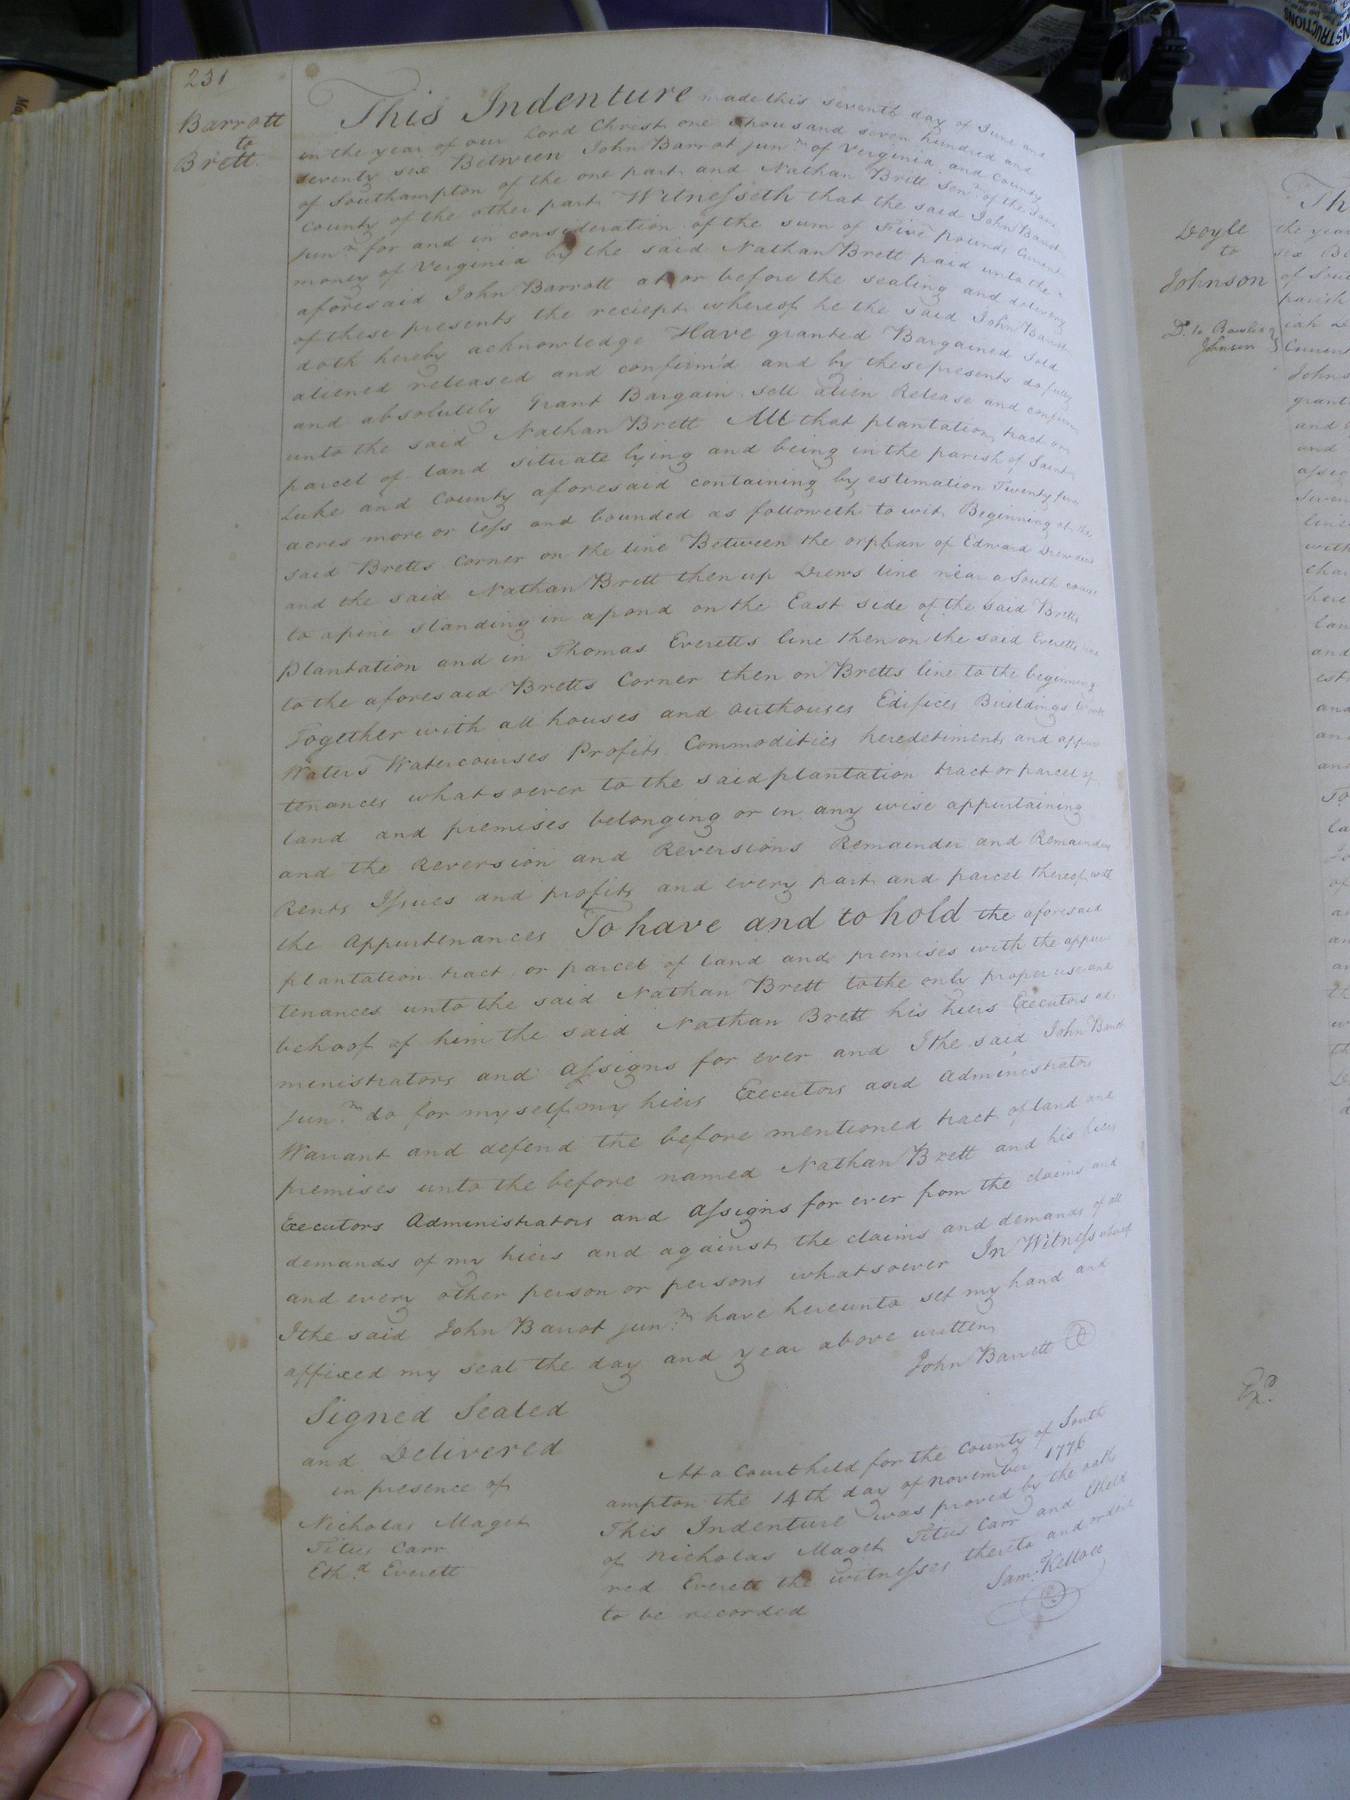 231
Barrott
to
Brett
This Indenture made this seventh day of June and
in the year of our Lord Christ one thousand seven hundred and
seventy six Between John Barrot junr. of Verginia and County
of Southampton of the one part and Nathan Brett Senr. of the same
County of the other part Witnesseth that the said John Barrot
junr. for and in consideration of the sum of Five pounds Current
money of Verginia by the said Nathan Brett paid unto the
aforesaid John Barrott at or before the sealing and delivery
of these presents the reciept whereof he the said John Barrot
doth hereby acknowledge Have granted Bargained Sold
aliened released and confirm'd and by these presents do fully
and absolutely Grant Bargain sell alien Release and confirm
unto the said Nathan Brett All that plantation tract or
parcel of land situate lying and being in the parish of Saint
Luke and County aforesaid containing by estimation Twenty
acres more or less and bounded as followeth to wit Beginning at the
said Bretts Corner on the line Between the orphan of Edward Drew
and the said Nathan Brett then up Drews line near a South course
to a pine standing in a pond on the East side of the said Bretts
plantation and in Thomas Everetts line then on the said Everetts line
to the aforesaid Bretts Corner then on Bretts line to the beginning
Together with all houses and outhouses Edifices Buildings
Waters Watercourses Profits Commodities heredetiments and appur
tenances whatsoever to the said plantation tract or parcel of
land and premises belonging or in any wise appurtaining
and the Reversion and Reversions Remainder and Remainders
Rents Issues and profits and every part and parcel thereof with
the appurtenances To have and to hold the aforesaid
plantation tract or parcel of land and premises with the appur
tenances unto the said Nathan Brett to the only proper use and
behoof of him the said Nathan Brett his hiers Executors ad
ministrators and Assigns for ever and I the said John Barrot
junr. do for myself my hiers Executors and Administrators
Warrant and defend the before mentioned tract of land and
premises unto the before named Nathan Brett and his hiers
Executors Administrators and Assigns for ever from the claims and
demands of my hiers and against the claims and demands of all
and every other person or persons whatsoever In Witness whereof
I the said John Barrot junr. have hereunto set my hand and
affixed my seal the day and year above written
John Barrett
Signed Sealed
and Delivered
in presence of
Nicholas Maget
Titus Carr
Ethd. Everett
At a Court held for the County of South
ampton the 14th day of November 1776
This Indenture was proved by the oath
of Nicholas Maget Titus Carr and Etheld
red Everett the witnesses thereto and orderd
to be recorded
Sam. Kello
Doyle
to
Johnson
Do. to Bowling
Johnson
Exd.
Th
the year
six Be
of Sou
parish